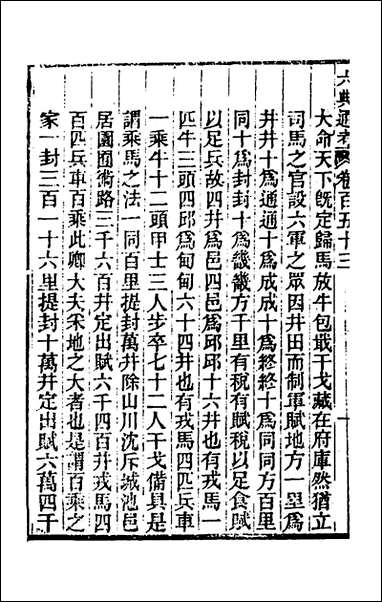 六典通考 卷百五十三 一
大命天下旣定歸馬放牛包戢干戈藏在府庫然猶立
司馬之官設六軍之眾因井田而制軍賦地方一里爲
井井十爲通通十爲成成十爲終終十爲同同方百里
同十爲封封十爲畿畿方千里有稅有賦稅以足食賦
以足兵故四井爲邑四邑爲邱邱十六井也有戎馬一
匹牛三頭四邱爲甸甸六十四井也有戎馬四匹兵車
一乘牛十二頭甲士三人步卒七十二人干戈備具是
謂乘馬之法一同百里提封萬井除山川沈斥城池邑
居園囿術路三千六百井定出賦六千四百井戎馬四
百匹兵車百乘此卿大夫采地之大者也是謂百乘之
家一封三百一十六里提封十萬井定出賦六萬四千